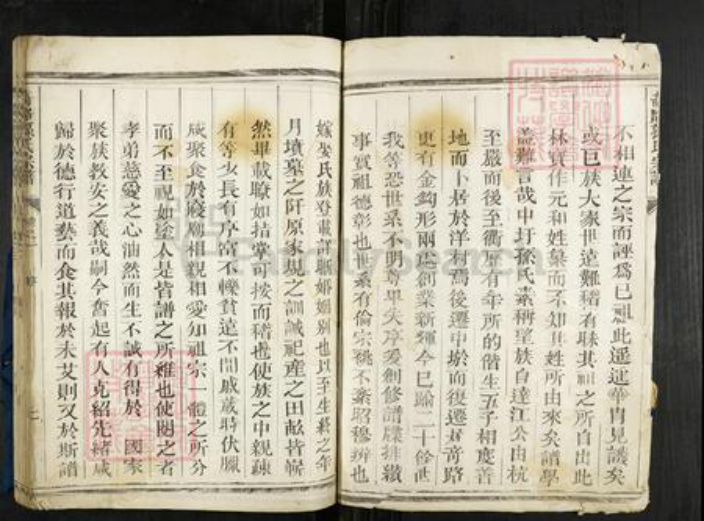 不相連之宗而誣為已祖此遥遥華胄見譏矣
或巨族大家世遠難稽有昧其祖之所自出此
林寶作元和姓纂而不知其姓所由來矣譜學
蓋難言哉中圩孫氏素稱望族自達江公由杭
至嚴而後至衢歷有年所的偕生五子相度善
地而卜居於洋村焉後遷中圩而復遷於奇路
更有金鈎形兩處創業新輝今已踰二十餘世
我等恐世系不明尊卑失序爰創修譜牒排纘
事實祖德彰也世系有倫宗祧不紊昭穆辨也
嫁娶氏族登載詳晰婚姻别也以至生終之年
月墳墓之阡原家規之訓誡祀產之田畝皆嶄
然畢載瞭如指掌可按而稽也使族之中親疎
有等少長有序富不轢貧遠不間戚歲時伏臘
咸聚食於寢廟相親相愛知祖宗一體之所分
而不至視如塗人是皆譜之所維也使閱之者
孝弟慈愛之心油然而生不誠有得於 國家
聚族教安之義哉嗣今奮起有人克紹先緒咸
歸於德行道藝而食其報於未艾則又於斯譜
FamilySearch